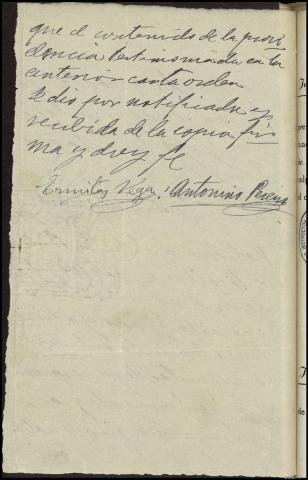 que el contenido de la provi
dencia testimoniada en la
anterior carta orden
se dio por notificada y
recibida de la copia fir
ma y doy fe
Ermitas Vega. Antonino Pereira